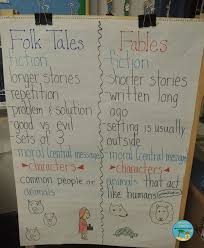 Folk Tales
fiction
longer stories
repetition
problem & solution
good vs evil
sets of 3
moral (central message)
characters
common people or
animals
Fables
fiction
shorter stories
written long
ago
setting is usually
outside
moral (central message)
characters
animals that act
like humans